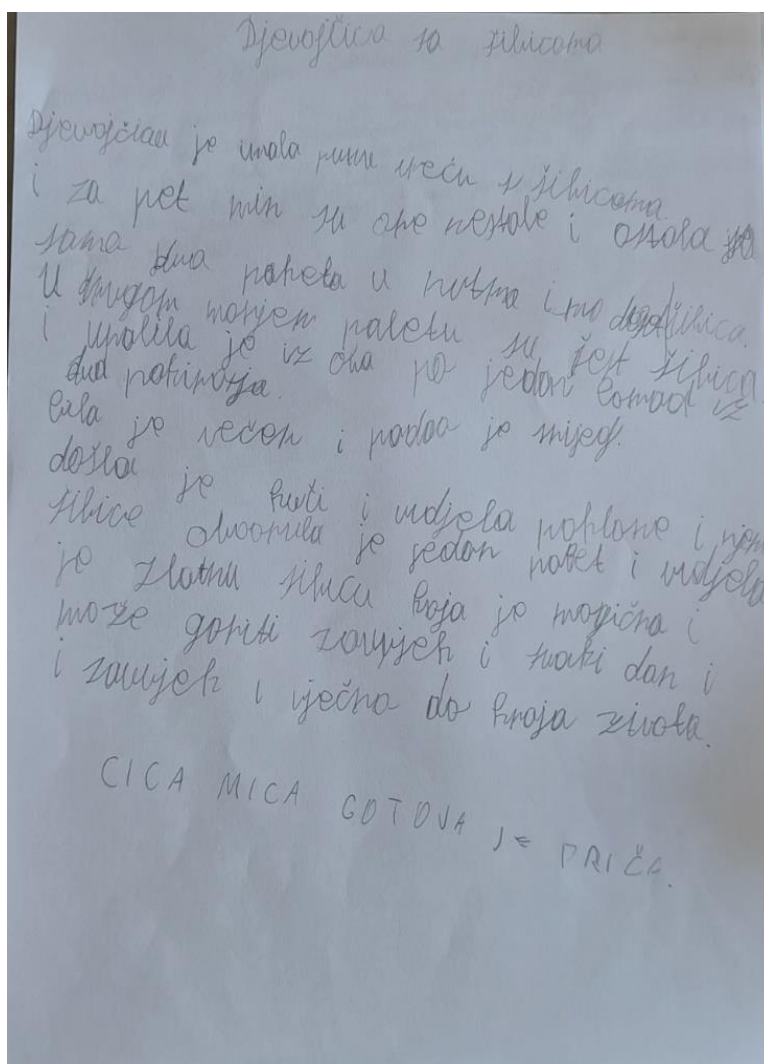 Djevojčica sa šibicama
Djevojčica je imala punu vreću s šibicama.
i za pet min su one nestale i ostala
sama dva paketa u
U drugom manjem paketu su šest šibica.
i upalila je iz oba po jedan komad iz
dva
bila je večer i padao je snijeg.
došla je kući i vidjela poklone i
šibice otvorila je jedan paket i vidjela
je zlatnu šibicu koja je magična i
može goriti zauvijek i svaki dan i
i zauvijek i vječno do kraja života.
CICA MICA GOTOVA JE PRIČA.